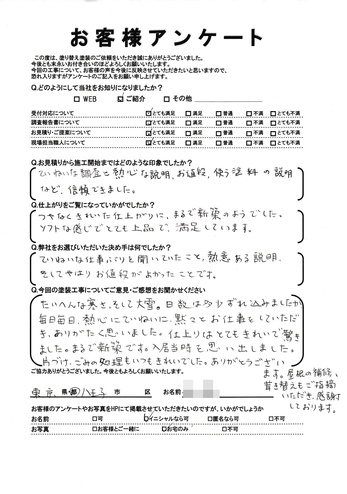 お客様アンケート
この度は、塗り替え塗装のご依頼をいただき誠にありがとうございました。
今後とも末永いお付き合いのほどよろしくお願いいたします。
今回の工事について、お客様の声を今後に反映させていただきたいと思いますので、
恐れ入りますがアンケートのご記入をお願い申し上げます。
Q.どのようにして当社をお知りになりましたか?
□WEB ☑ご紹介 □その他
受付対応について ☑とても満足 □満足 □普通 □不満 □とても不満
調査報告書について ☑とても満足 □満足 □普通 □不満 □とても不満
お見積り・ご提案について ☑とても満足 □満足 □普通 □不満 □とても不満
現場担当職人について ☑とても満足 □満足 □普通 □不満 □とても不満
Q.お見積りから施工開始まではどのような印象でしたか?
ていねいな調査と熱心な説明、お値段、使う塗料の説明
など、信頼できました。
Q.仕上がりをご覧になっていかがでしたか?
つやなくきれいた仕上がりに、まるで新築のようでした。
ソフトな感じでとても上品で、満足しています。
Q.弊社をお選びいただいた決め手は何でしたか?
ていねいな仕事ぶりと聞いていたこと、熱意ある説明、
そしてやはりお値段がよかったことです。
Q.今回の塗装工事についてご意見・ご感想をお聞かせください
たいへんな寒さ、そして大雪。日数は多少ずれ込みましたが
毎日毎日、熱心にていねいに、黙々とお仕事をしていただ
き、ありがたく思いました。仕上りはとてもきれいで驚き
ました。まるで新築です。入居当時を思い出しました。
片づけ、ごみの処理もいつもきれいでした。ありがとうござい
ます。屋根の補修、
葺き替えもご指摘
いただき、感謝
しております。
ご協力ありがとうございました。今後ともよろしくお願いいたします。
東京 県・都 八王子 市 区 お名前
お客様のアンケートやお写真をHPにて掲載させていただきたいのですが、いかがでしょうか
お名前 □可 ☑イニシャルなら可 □匿名なら可 □不可
お写真 □お客様とご一緒に □お宅のみ □不可